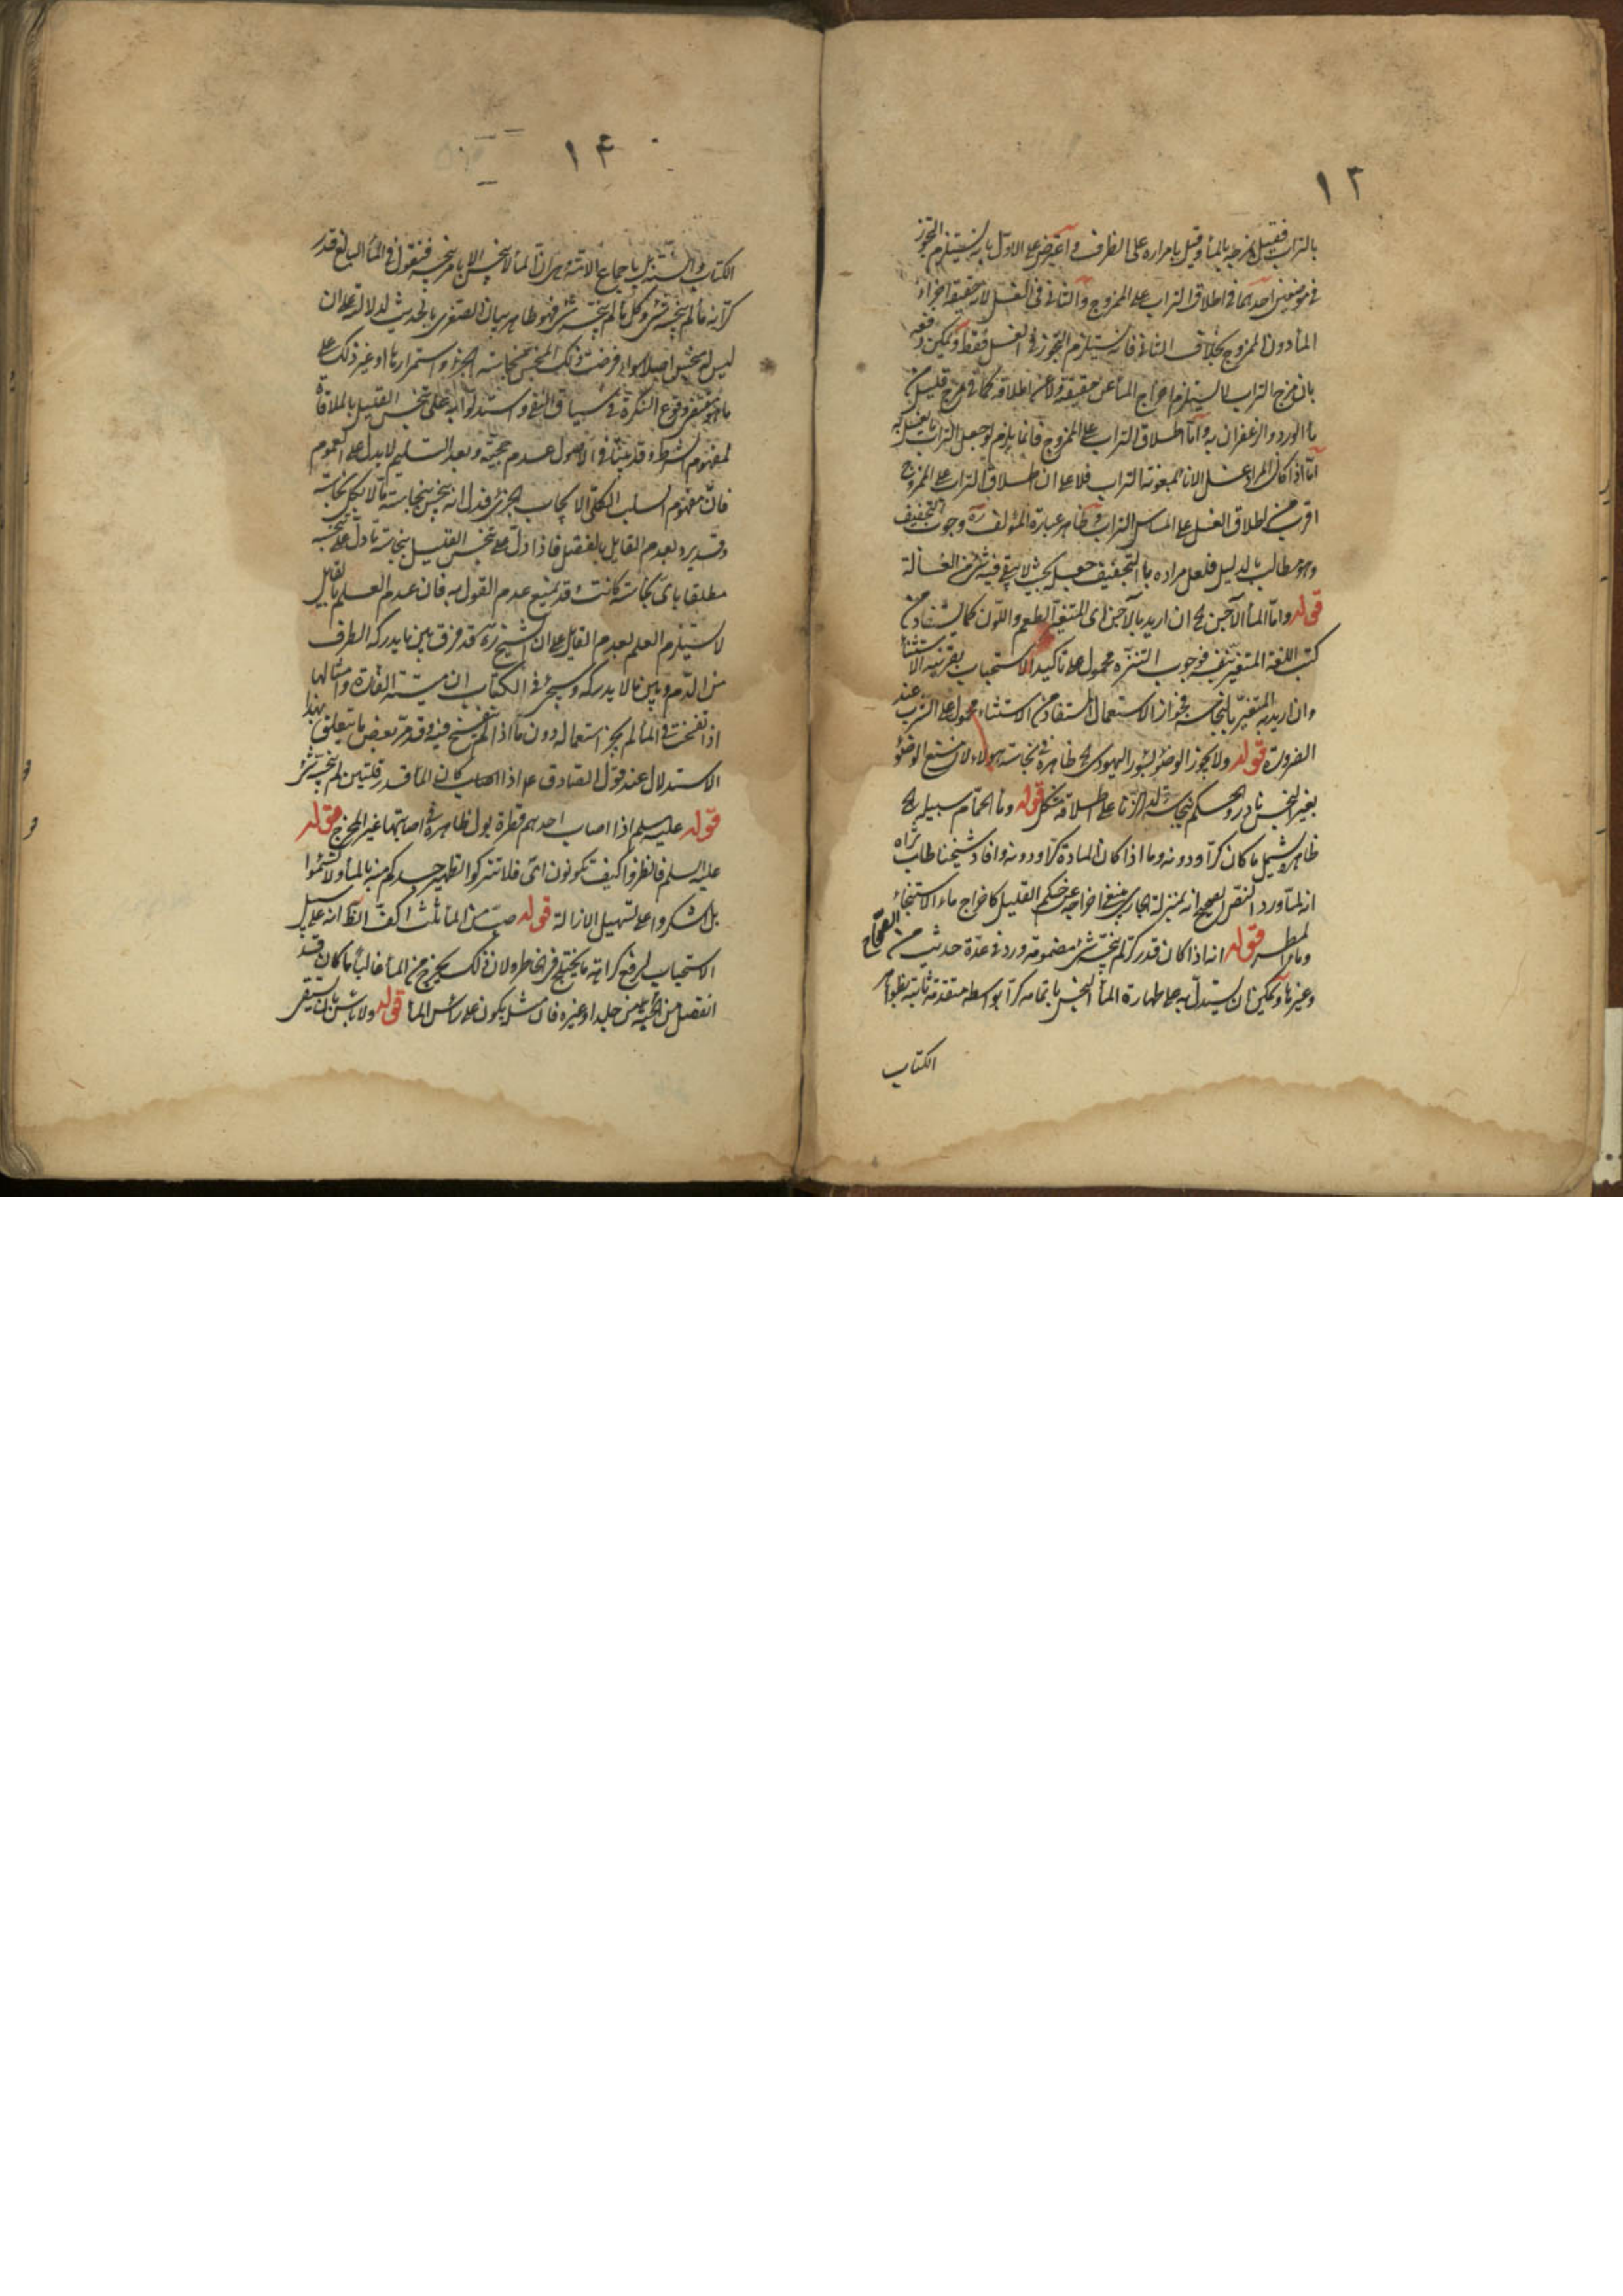 ١٣
بالتراب فقيل بمزجه بالماء وقيل بامراره على الظرف واعترض على الاول بانه يستلزم التجوز
في موضعين احدهما في اطلاق التراب على الممزوج والثاني في الغسل لانه حقيقة اجراء
الماء دون الممزوج بخلاف الثاني فانه يستلزم التجوز في الغسل فقط ويمكن دفعه
بان مزج التراب لا يستلزم اخراج الماء عن حقيقته ولا عن اطلاقه كما في مزج قليل من
ماء الورد والزعفران به واما اطلاق التراب على الممزوج فانما يلزم لو جعل التراب ما يغسل به
اما اذا كان المراد غسل الاناء بمعونة التراب فلا على ان اطلاق التراب على الممزوج
اقرب من اطلاق الغسل على المساس بالتراب وظاهر عبارة المؤلف ره وجوب التجفيف
وهو مطالب بالدليل فلعل مراده بالتجفيف جعله بحيث لا يبقى فيه شئ من الغسالة
قوله واما الماء الآجن الخ ان اريد بالآجن اى المتغير الطعم واللون كما يستفاد من
كتب اللغة المتغير بنفسه فوجوب التنزه محمول على تاكيد الاستحباب بقرينة الاستثناء
وان اريد به المتغير بالنجاسة فجواز الاستعمال المستفاد من الاستثناء محمول على الشرب عند
الضرورة قوله ولا يجوز الوضوء بسؤر اليهودى الخ ظاهره نجاسة هؤلاء لان منع الوضوء
بغير النجس نادر والحكم بنجاسة ولد الزنا على اطلاقه مشكل قوله وماء الحمام سبيله الخ
ظاهره يشمل ما كان كرا ودونه وما اذا كان المادة كرا ودونه وافاد شيخنا طاب ثراه
انه لما ورد النص الصحيح انه بمنزلة الجارى ينبغي اخراجه عن حكم القليل كاخراج ماء الاستنجاء
وماء المطر قوله انه اذا كان قدر كر لم ينجسه شئ مضمومة ورد في عدة حديث من الصحاح
وغيرها ويمكن ان يستدل به على طهارة الماء النجس باتمامه كرا بواسطة متقدمة ثابتة بظواهر
الكتاب
١٤
الكتاب والسنة بل باجماع الامة وهى ان الماء لا ينجس الا بامر ينجسه فنقول في الماء البالغ قدر
كر انه ماء لم ينجسه شئ وكل ماء لم ينجسه شئ فهو طاهر بيان الصغرى بالحديث لدلالته على ان
ليس له منجس اصلا سواء فرضت ذلك المنجس نجاسة الجزء واستمرارها او غير ذلك على
ما هو مقتضى وقوع النكرة في سياق النفى واستدلوا به على تنجس القليل بالملاقاة
لمفهوم الشرط وقد بينا في الاصول عدم حجيته وبعد التسليم لا يدل على العموم
فان مفهوم السلب الكلى الايجاب الجزئى فيدل انه ينجس بنجاسة ما لا بكل نجاسة
وقد يرد بعدم القايل بالفصل فاذا دل على تنجس القليل بنجاسة ما دل على تنجسه
مطلقا باى نجاسة كانت وقد يمنع عدم القول به فان عدم العلم بالقايل
لا يستلزم العلم بعدم القايل على ان الشيخ ره قد فرق بين ما يدركه الطرف
من الدم وبين ما لا يدركه وسيجئ في الكتاب ان ميتة الفارة وامثالها
اذا تفسخت في الماء لم يجز استعماله دون ما اذا لم ينفسخ فيه وقد مر بعض ما يتعلق بهذا
الاستدلال عند قول الصادق ع اذا كان الماء قدر قلتين لم ينجسه شئ
قوله عليه السلم اذا اصاب احدهم قطرة بول ظاهره في اصابتها غير المخرج قوله
عليه السلم فانظروا كيف تكونون اى فلا تتركوا تطهير جسدكم منه بالماء ولا تسئموا
بل اشكروا على تسهيل الازالة قوله صب من الماء ثلث اكف الظ انه على سبيل
الاستحباب لرفع كراهة ما يختلج في الخاطر ولان ذلك يخرج من الماء غالبا ما كان قد
انفصل من الحية من جلد او غيره فان مثله يكون على راس الماء قوله ولا باس بان يستقى